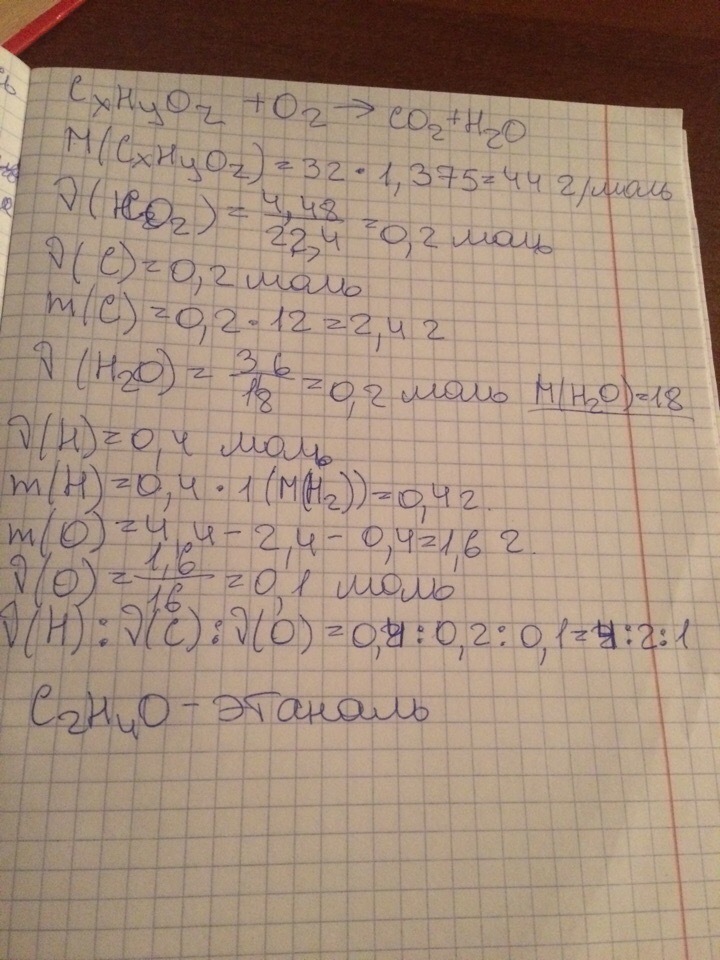 CxHyOz + O2 → CO2 + H2O
M(CxHyOz) = 32 · 1,375 = 44 г/моль
ν(CO2) = 4,48/22,4 = 0,2 моль
ν(C) = 0,2 моль
m(C) = 0,2 · 12 = 2,4 г
ν(H2O) = 3,6/18 = 0,2 моль M(H2O) = 18
ν(H) = 0,4 моль
m(H) = 0,4 · 1 (M(H2)) = 0,4 г.
m(O) = 4,4 - 2,4 - 0,4 = 1,6 г.
ν(O) = 1,6/16 = 0,1 моль
ν(H) : ν(C) : ν(O) = 0,4 : 0,2 : 0,1 = 4 : 2 : 1
C2H4O - этаналь